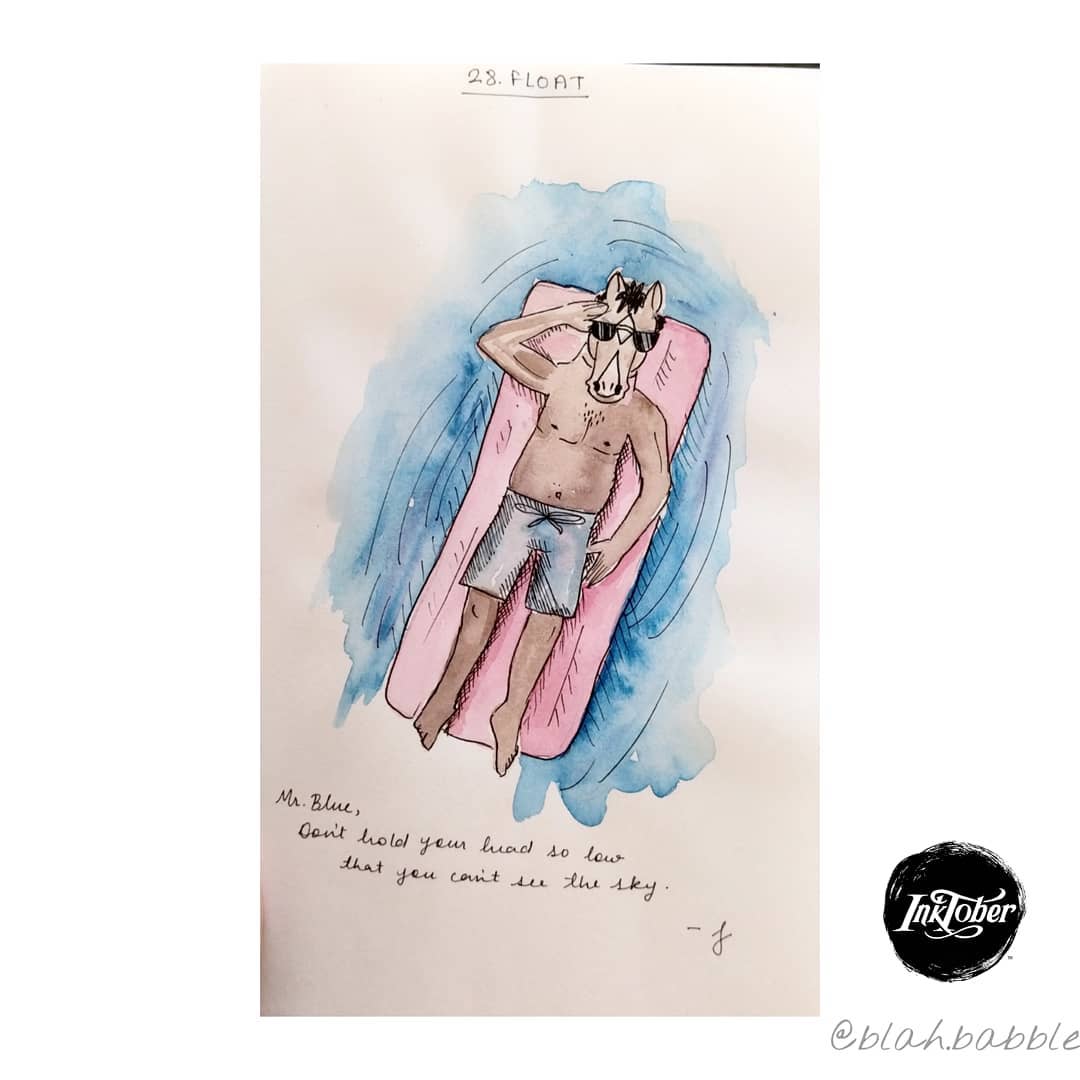 28. FLOAT
Mr. Blue,
Don't hold your head so low
that you can't see the sky.
- J
InkTober
TM
@blah.babble